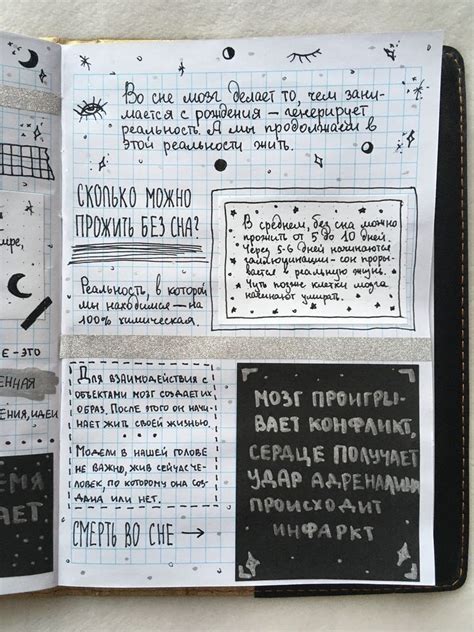 Во сне мозг делает то, чем зани-
мается с рождения — генерирует
реальность. А мы продолжаем в
этой реальности жить.
СКОЛЬКО МОЖНО
ПРОЖИТЬ БЕЗ СНА?
В среднем, без сна можно
прожить от 5 до 10 дней.
Через 5-6 дней начинаются
галлюцинации - сон проры-
вается в реальную жизнь.
Чуть позже клетки мозга
начинают умирать.
Реальность, в которой
мы находимся — на
100% химическая.
Для взаимодействия с
объектами мозг создает их
образ. После этого он начи-
нает жить своей жизнью.
Модели в нашей голове
не важно, жив сейчас че-
ловек, по которому она со-
здана или нет.
СМЕРТЬ ВО СНЕ →
МОЗГ ПРОИГРЫ-
ВАЕТ КОНФЛИКТ,
СЕРДЦЕ ПОЛУЧАЕТ
УДАР АДРЕНАЛИНА
ПРОИСХОДИТ
ИНФАРКТ
Е - ЭТО